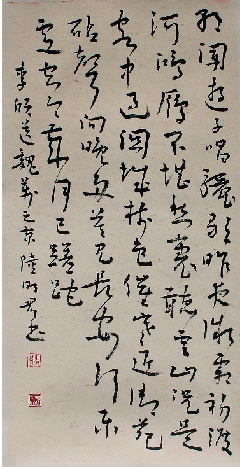 朝闻遊子唱驪歌昨夜微霜初渡
河鴻雁不堪愁裏聽雲山況是
客中過關城樹色催寒近御苑
砧聲向晚多莫見長安行樂
處空令歲月已蹉跎
李頎送魏萬之京 陸明君书